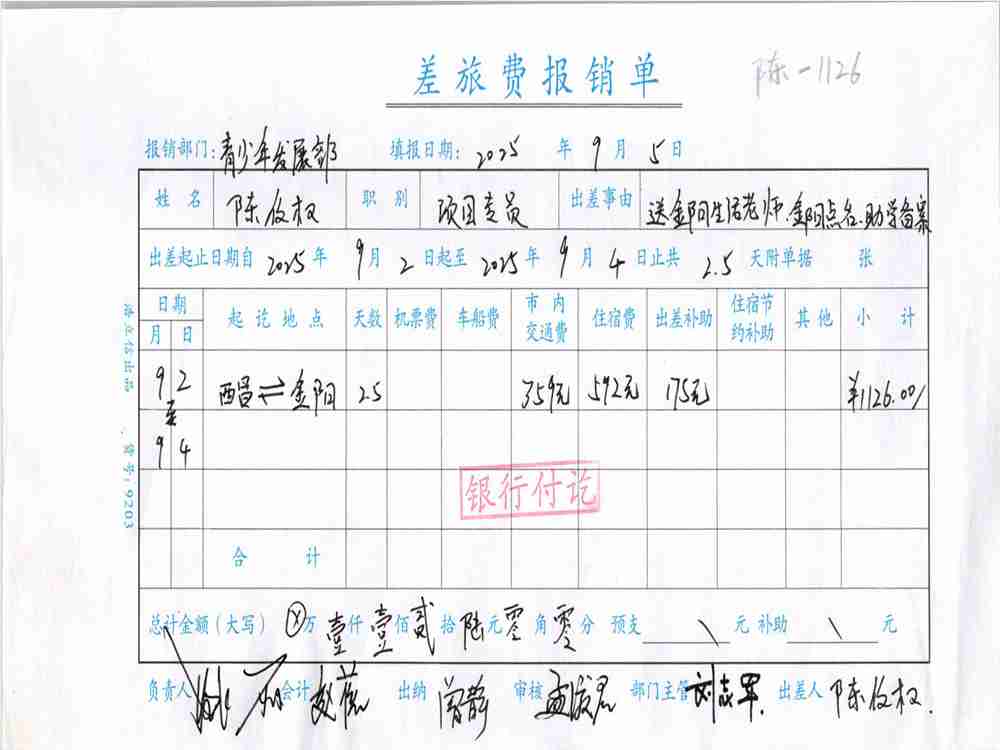 差旅费报销单
陈-1126
报销部门:青少年发展部 填报日期: 2025 年 9 月 5 日
姓 名 陈伎权 职 别 项目专员 出差事由 送金阳生活老师.金阳点名.助学备案
出差起止日期自 2025 年 9 月 2 日起至 2025 年 9 月 4 日止共 2.5 天附单据 张
日期 起讫地点 天数 机票费 车船费 市内交通费 住宿费 出差补助 住宿节约补助 其他 小计
月 日
9 2 西昌⇌金阳 2.5 359元 592元 175元 ¥1126.00/
至
9 4
银行付讫
合 计
总计金额(大写) ⓧ万 壹仟 壹佰 贰拾 陆元 零角 零分 预支 \ 元 补助 \ 元
负责人 会计 赵薇 出纳 曾静 审核 部门主管 刘志军. 出差人 陈伎权.
浩立信出品 货号:9203